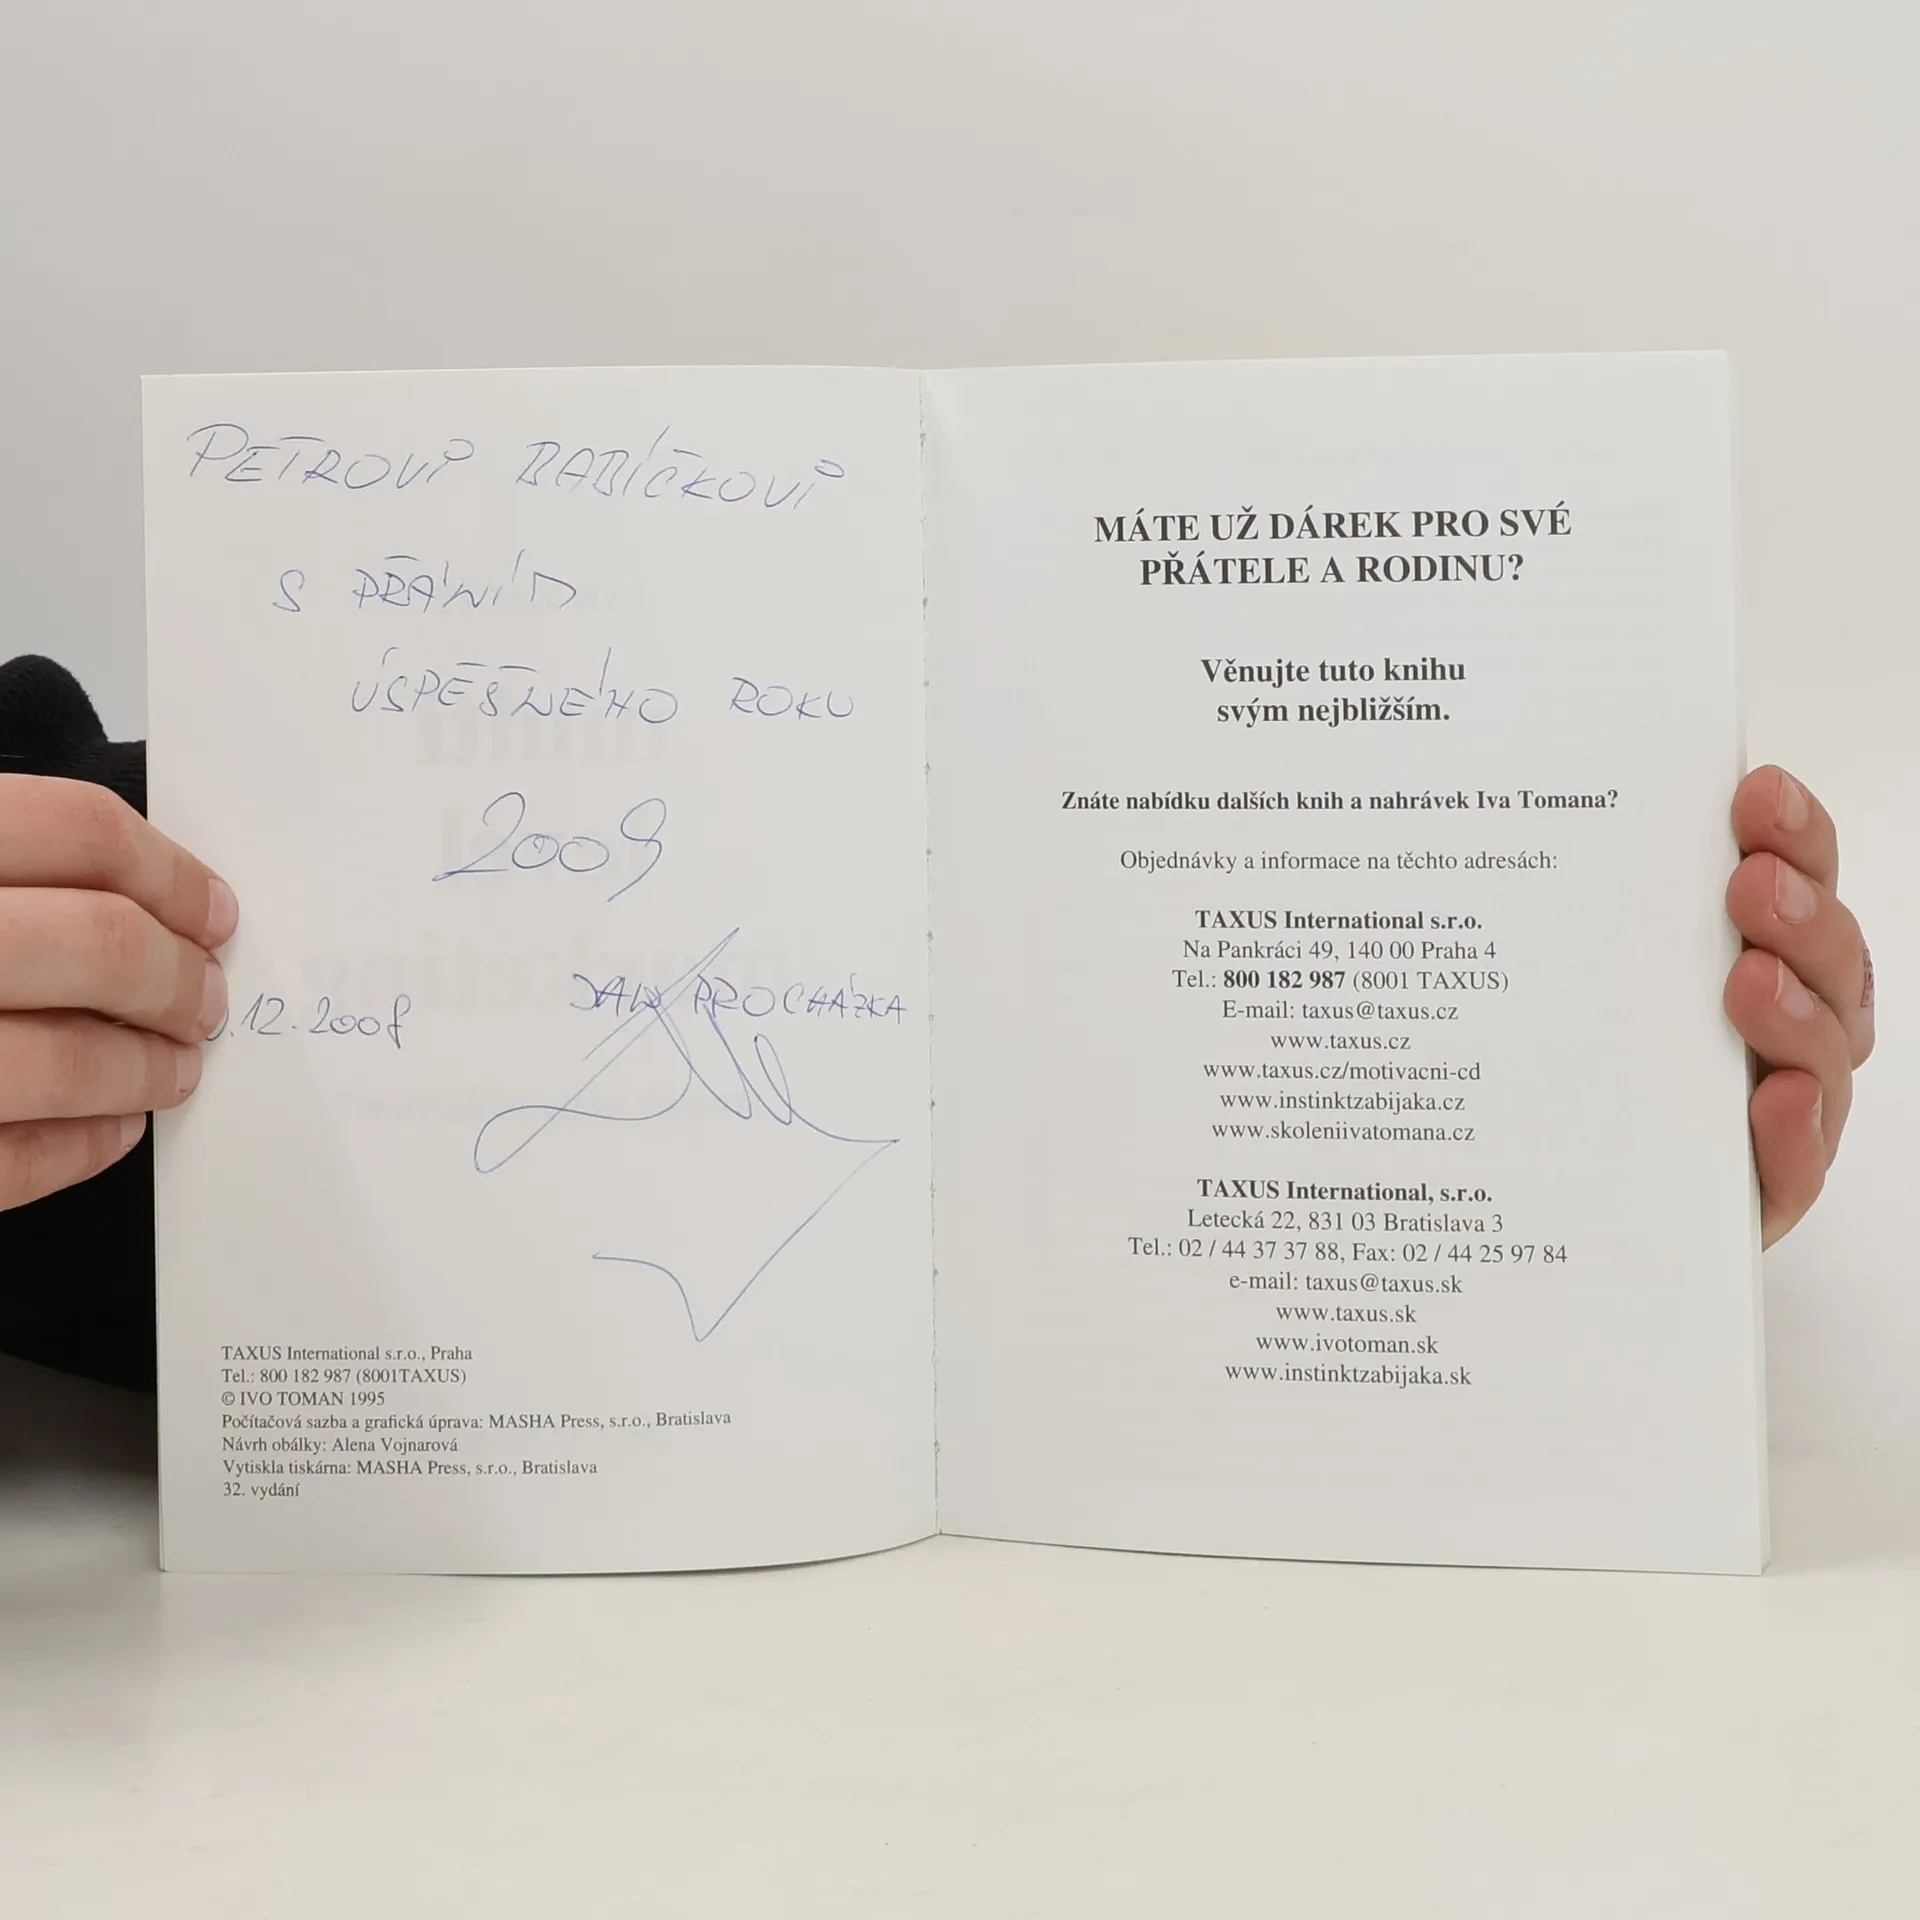 PETROVI BABÍČKOVI
S PŘÁNÍM
ÚSPĚŠNÉHO ROKU
2009
JAN PROCHÁZKA
.12.2008
TAXUS International s.r.o., Praha
Tel.: 800 182 987 (8001TAXUS)
© IVO TOMAN 1995
Počítačová sazba a grafická úprava: MASHA Press, s.r.o., Bratislava
Návrh obálky: Alena Vojnarová
Vytiskla tiskárna: MASHA Press, s.r.o., Bratislava
32. vydání
MÁTE UŽ DÁREK PRO SVÉ
PŘÁTELE A RODINU?
Věnujte tuto knihu
svým nejbližším.
Znáte nabídku dalších knih a nahrávek Iva Tomana?
Objednávky a informace na těchto adresách:
TAXUS International s.r.o.
Na Pankráci 49, 140 00 Praha 4
Tel.: 800 182 987 (8001 TAXUS)
E-mail: taxus@taxus.cz
www.taxus.cz
www.taxus.cz/motivacni-cd
www.instinktzabijaka.cz
www.skoleniivatomana.cz
TAXUS International, s.r.o.
Letecká 22, 831 03 Bratislava 3
Tel.: 02 / 44 37 37 88, Fax: 02 / 44 25 97 84
e-mail: taxus@taxus.sk
www.taxus.sk
www.ivotoman.sk
www.instinktzabijaka.sk